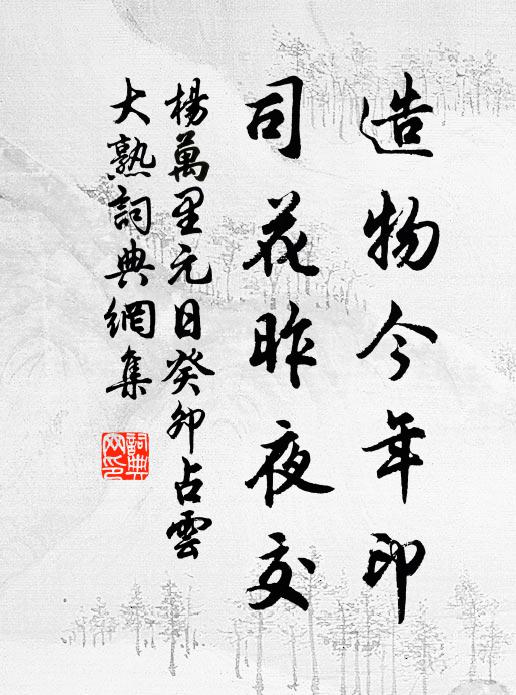 造物今年印
司花昨夜交
楊萬里元日癸卯占雲
大熟詞典網集
詞典网印